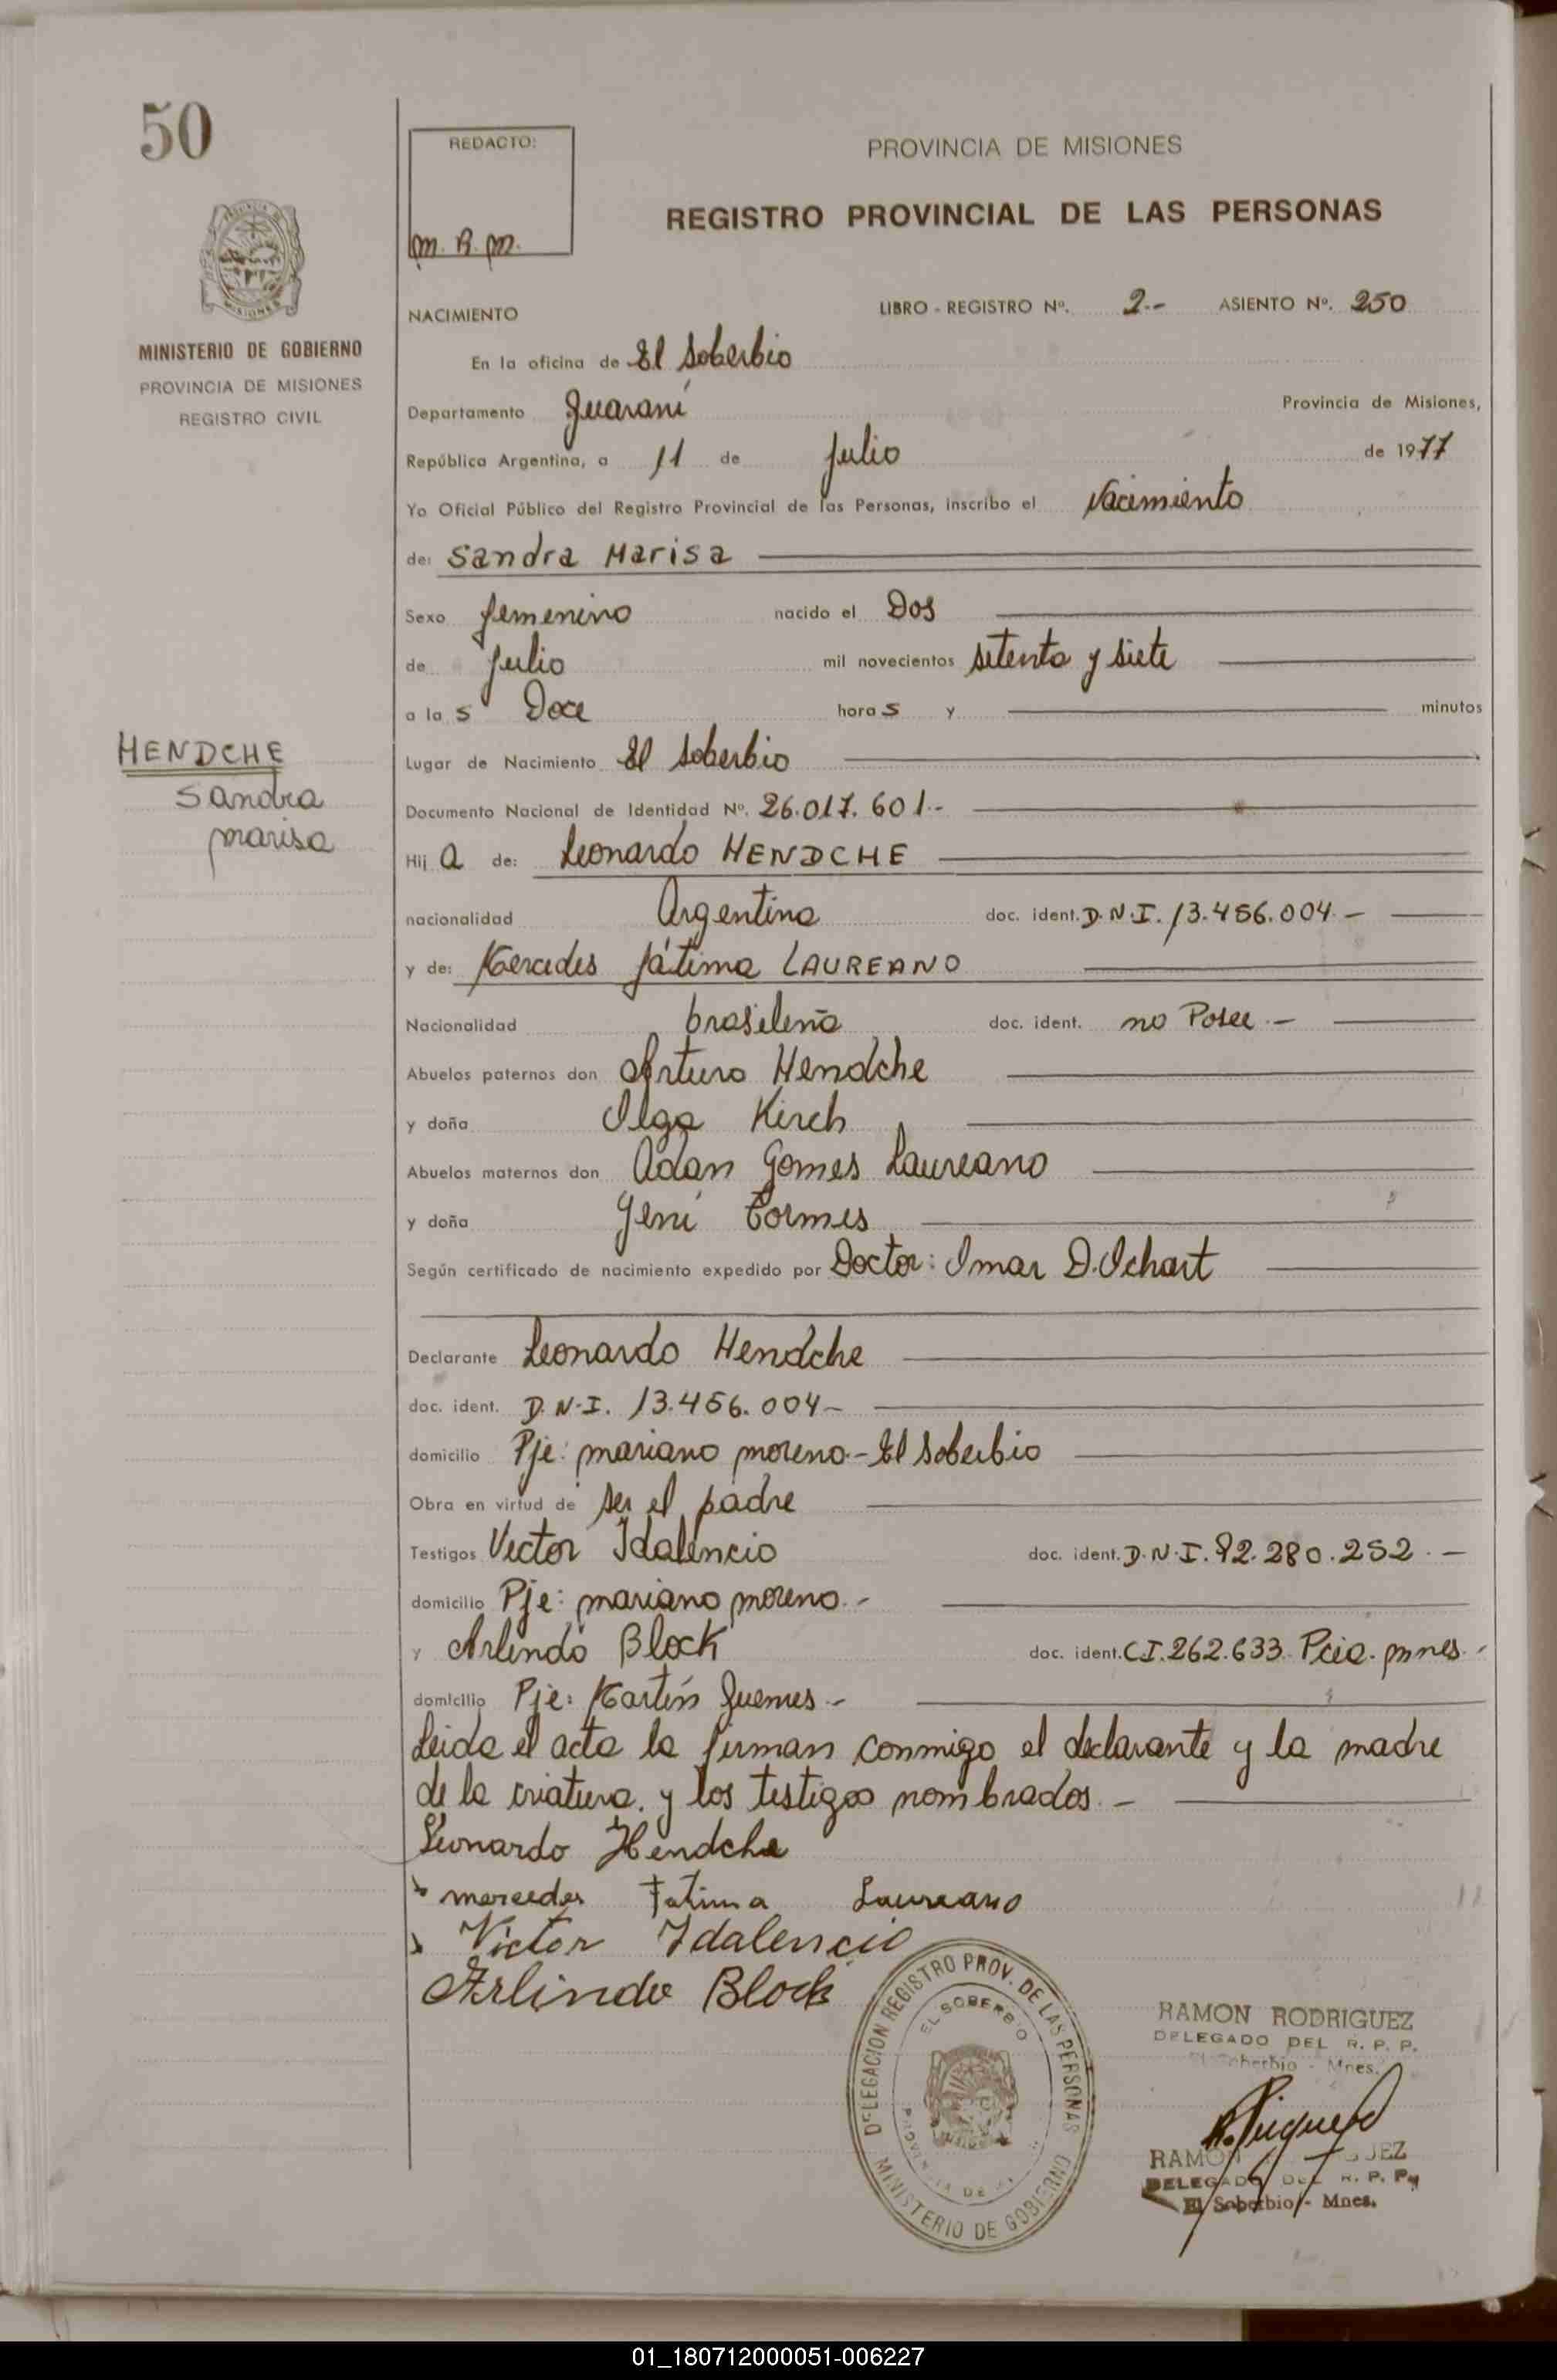 50
REDACTO:
m. R. m.
PROVINCIA DE MISIONES
REGISTRO PROVINCIAL DE LAS PERSONAS
MINISTERIO DE GOBIERNO
PROVINCIA DE MISIONES
REGISTRO CIVIL
NACIMIENTO LIBRO - REGISTRO Nº. 2.- ASIENTO Nº. 250
En la oficina de El Soberbio
Departamento Guaraní Provincia de Misiones,
República Argentina, a 11 de Julio de 1977
Yo Oficial Público del Registro Provincial de las Personas, inscribo el Nacimiento
de: Sandra Marisa
Sexo femenino nacido el Dos
de Julio mil novecientos setenta y siete
a la s Doce hora s y minutos
HENDCHE
Sandra
marisa
Lugar de Nacimiento El Soberbio
Documento Nacional de Identidad Nº. 26.017.601.-
Hij a de: Leonardo HENDCHE
nacionalidad Argentina doc. ident. D.N.I. 13.456.004.-
y de: Mercedes Fátima LAUREANO
Nacionalidad brasileña doc. ident. no Posee.-
Abuelos paternos don Arturo Hendche
y doña Olga Kirch
Abuelos maternos don Adan Gomes Laureano
y doña Jení Tormes
Según certificado de nacimiento expedido por Doctor: Omar D. Ochart
Declarante Leonardo Hendche
doc. ident. D.N.I. 13.456.004-
domicilio Pje: mariano moreno.- El Soberbio
Obra en virtud de ser el padre
Testigos Victor Idalencio doc. ident. D.N.I. 92.280.252.-
domicilio Pje: mariano moreno.-
y Arlindo Block doc. ident. C.I. 262.633 Pcia. mnes.-
domicilio Pje: Martín Guemes.-
Leida el acta la firman conmigo el declarante y la madre
de la criatura. y los testigos nombrados.-
Leonardo Hendche
mercedes Fatima Laureano
Victor Idalencio
Arlindo Block
DELEGACION REGISTRO PROV. DE LAS PERSONAS
EL SOBERBIO
MINISTERIO DE GOBIERNO
RAMON RODRIGUEZ
DELEGADO DEL R. P. P.
El Soberbio - Mnes.
DELEGADO DEL R. P. P.
El Soberbio - Mnes.
01_180712000051-006227